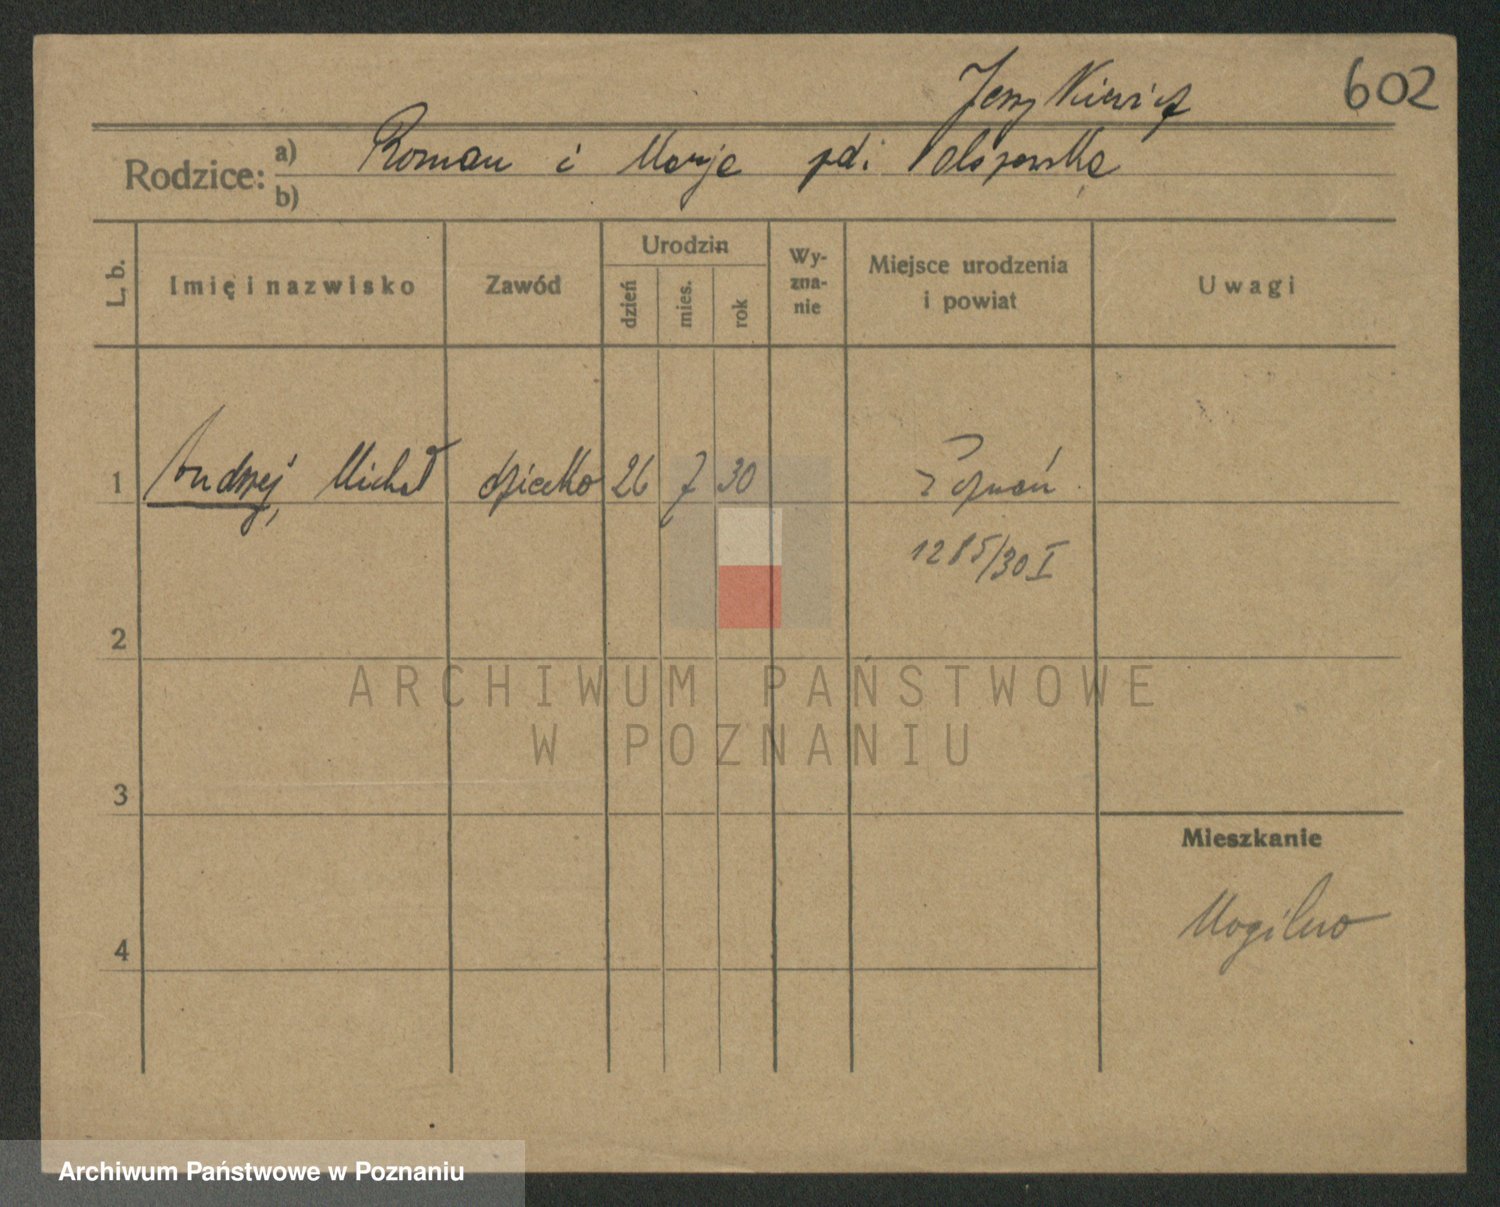 Jeszkiewicz 602
Rodzice: a) Roman i Marja
b)
L. b. Imię i nazwisko Zawód Urodzin dzień mies. rok Wyznanie Miejsce urodzenia i powiat Uwagi
1 Andrzej, Michał dziecko 26 7 30 Poznań
1285/30 I
2
ARCHIWUM PAŃSTWOWE
W POZNANIU
3
Mieszkanie
Mogilno
4
Archiwum Państwowe w Poznaniu